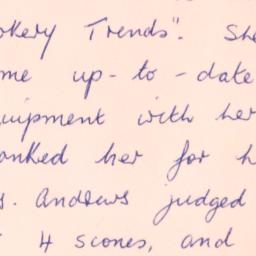 okery Trends". She
me up-to-date
uipment with her
anked her for h
s. Andrews judged
4 scones, and